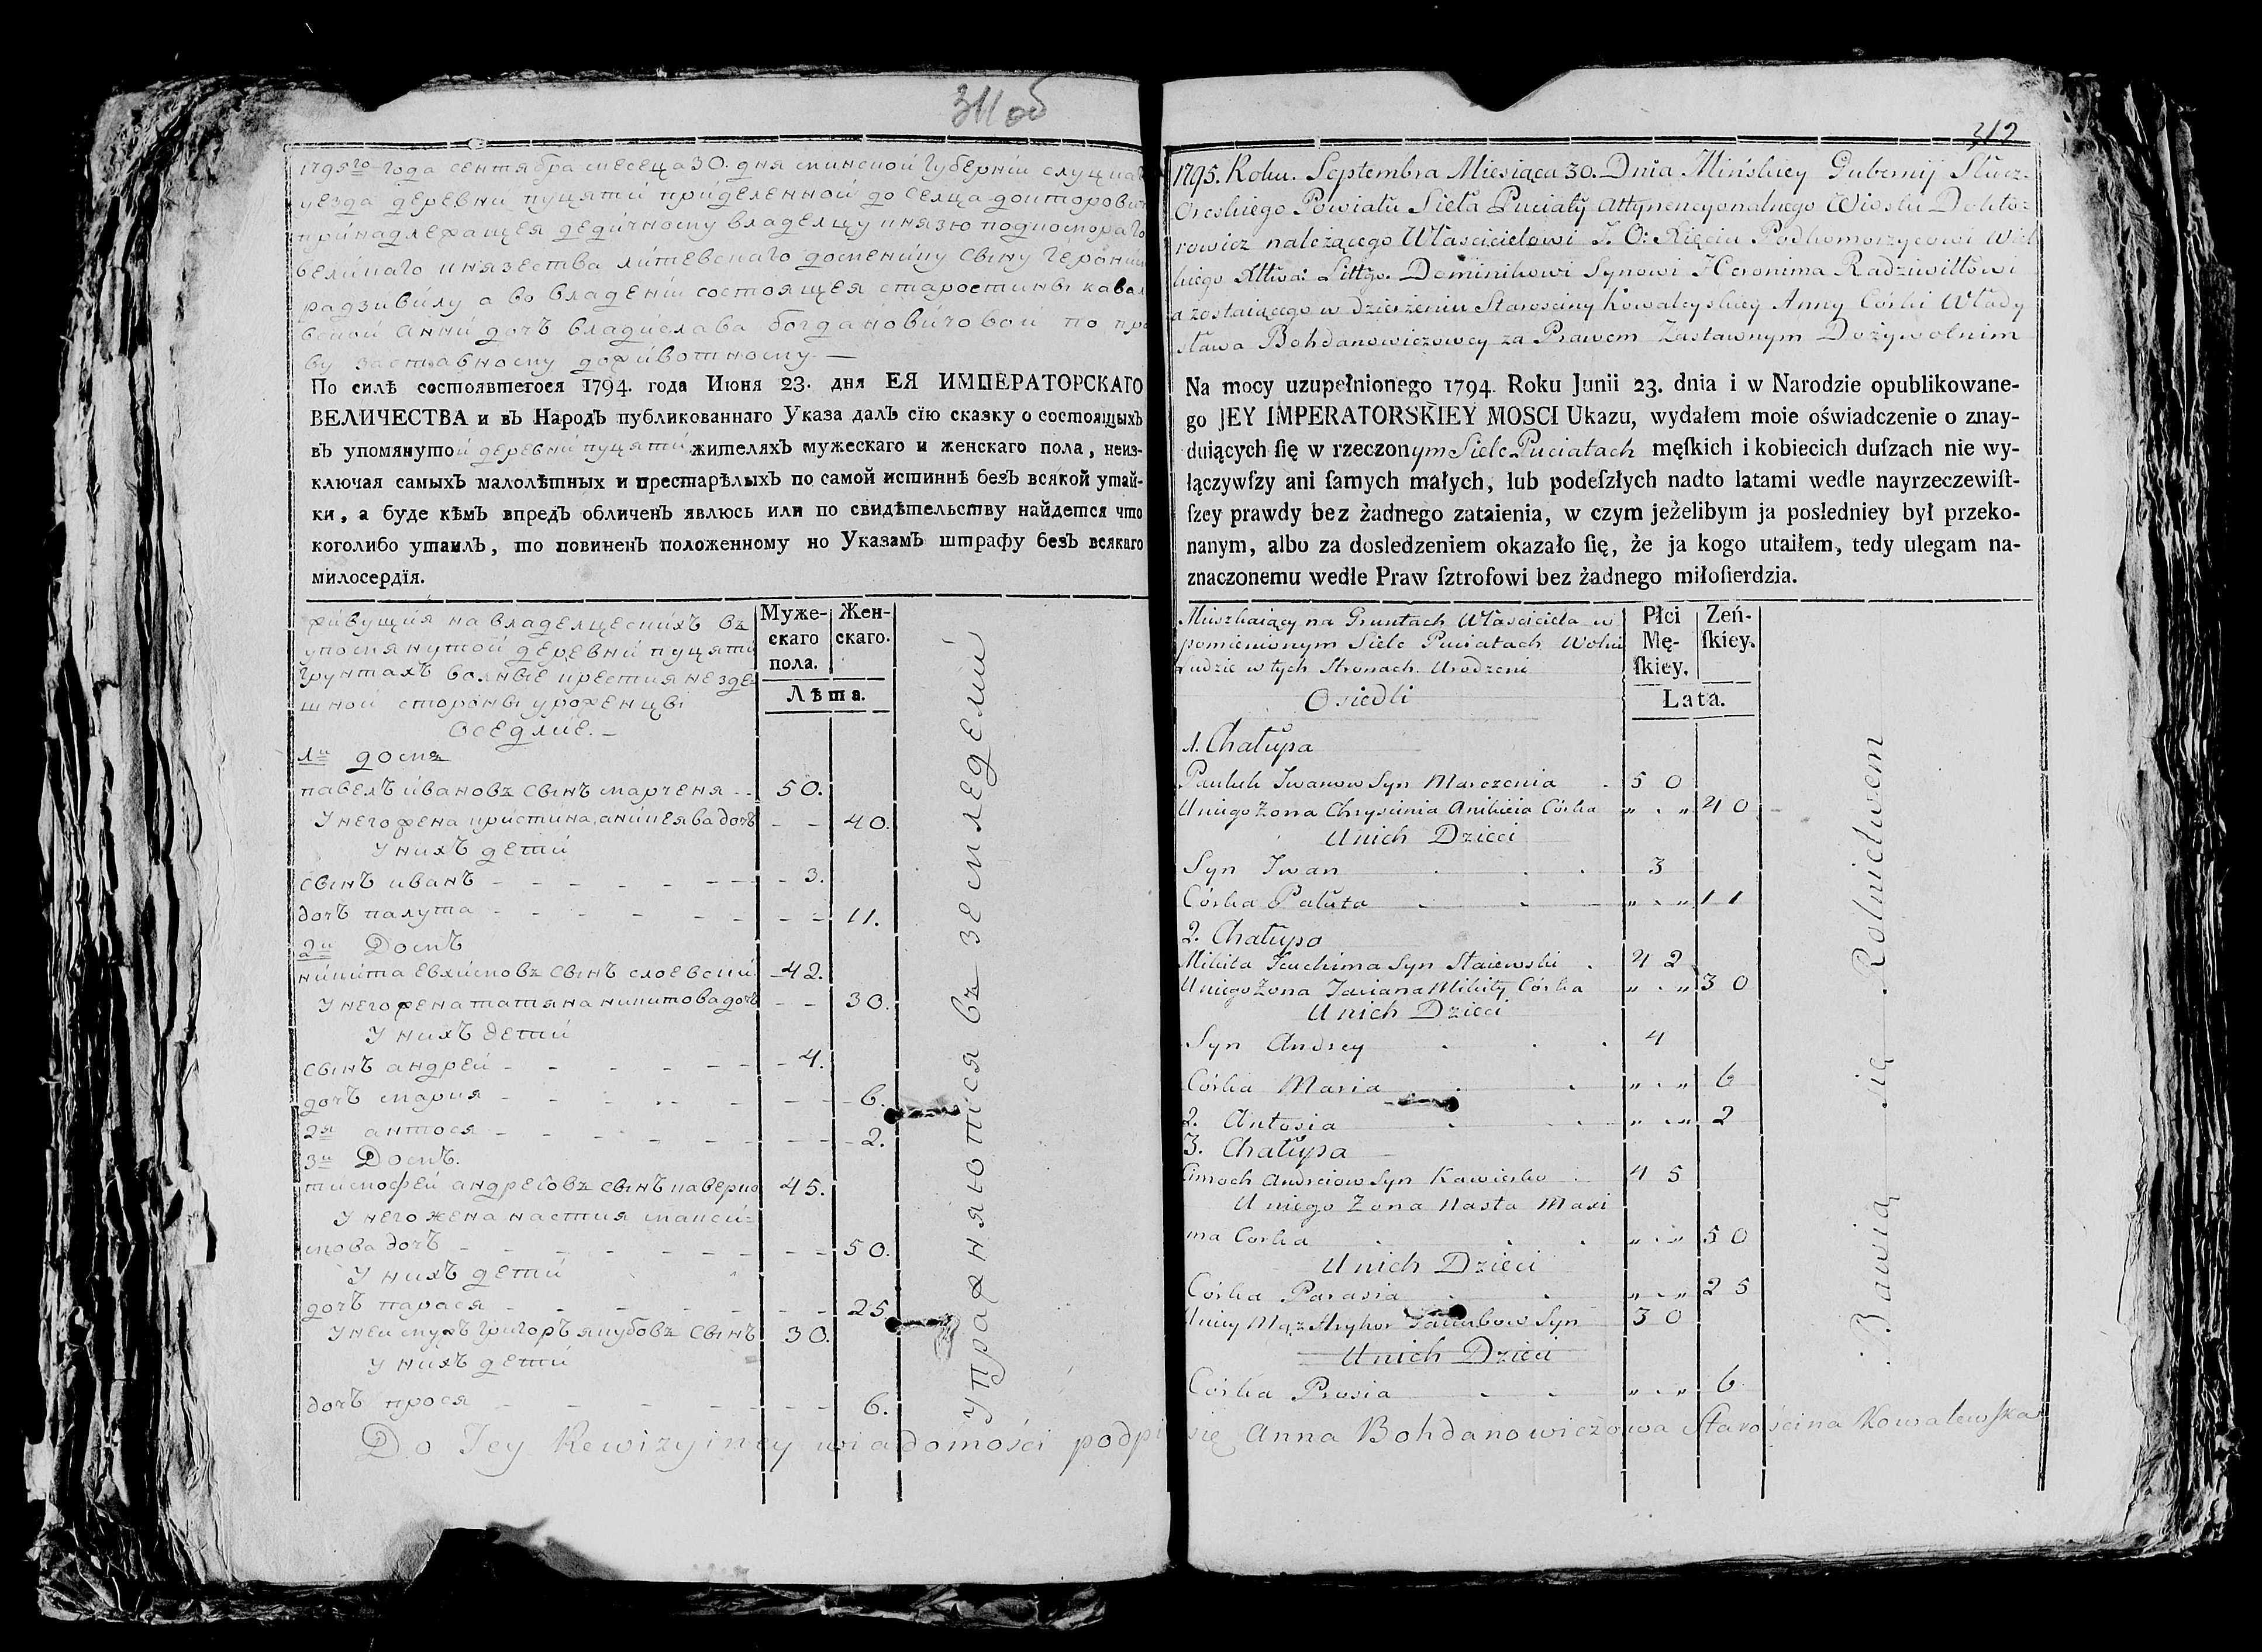 311 об
1795го года сентября месеца 30. дня минской губерній слуцкаг
уезда деревни пуцятй прйделенной до селца докторовичъ
принадлежащея дедичному владелцу князю подкомораго
велйкаго князества литевскаго доменйку сыну геронима
радзивйлу а во владенйи состоящея старостинъі кавал
вской анны дочъ владйслава богдановйчовой по пра
ву заставному дожйвотному. —
По силѣ состоявшегося 1794. года Июня 23. дня ЕЯ ИМПЕРАТОРСКАГО
ВЕЛИЧЕСТВА и въ Народъ публикованнаго Указа далъ сїю сказку о состоящыхъ
въ упомянутой деревнй пуцятй жителяхъ мужескаго и женскаго пола, неиз-
ключая самыхъ малолѣтныхъ и престарѣлыхъ по самой истиннѣ безъ всякой утай-
ки, а буде кѣмъ впредъ обличенъ явлюсь или по свидѣтельству найдется что
коголибо утаилъ, то повиненъ положенному по Указамъ штрафу безъ всякаго
милосердїя.
жйвущйя на владелцескихъ въ
упомянутой деревнй пуцятй
грунтахъ волные крестияне зде
шной стороны уроженцы
оседлйе. —
Муже-
скаго
пола.
Жен-
скаго.
Лѣта.
1й домъ
павелъ йвановъ сынъ марченя 50.
У него жена кристина, аникеява дочъ 40.
У нихъ детй
сынъ иванъ 3.
дочъ палута 11.
2й Домъ
никита евхимовъ сынъ слоевский 42.
У него жена татяна никитова дочъ 30.
У нихъ детй
сынъ андрей 4.
дочъ мария 6.
2я антося 2.
3й Домъ.
тимофей андреовъ сынъ каверко 45.
У него жена настия макси-
мова дочъ 50.
У нихъ детй
дочъ парася 25
У ней мужъ григоръ якубовъ сынъ 30.
У нихъ детй
дочъ прося 6.
упражняются въ земледелий
312
1795. Roku. Septembra Miesiąca 30. Dnia Mińskiey Gubernij Słucz-
Oreskiego Powiatu Sieła Puciaty Attynencyonalnego Wiosku Dokto-
rowicz należącego Włascicielowi J. O: Xięciu Podkomorzycowi Wiel
kiego Xttwa: Littgo. Dominikowi Synowi Heronima Radziwiłłowi
a zostaiącego w dzierżeniu Starosciny Kowalcyskiey Anny Córki Włady
sława Bohdanowiczowey za Prawem Zastawnym Dożywolnim
Na mocy uzupełnionego 1794. Roku Junii 23. dnia i w Narodzie opublikowane-
go JEY IMPERATORSKIEY MOSCI Ukazu, wydałem moie oświadczenie o znay-
duiących ſię w rzeczonym Siele Puciatach męſkich i kobiecich duſzach nie wy-
łączywſzy ani ſamych małych, lub podeſzłych nadto latami wedle nayrzeczewiſt-
ſzey prawdy bez żadnego zataienia, w czym jeżelibym ja posledniey był przeko-
nanym, albo za dosledzeniem okazało ſię, że ja kogo utaiłem, tedy ulegam na-
znaczonemu wedle Praw ſztrofowi bez żadnego miłoſierdzia.
Miszkaiący na Gruntach Własciciela w
pomienionym Siele Puciatach Wolni
Ludzie w tych Stronach Urodzeni
Osiedli
Płci
Mę-
ſkiey.
Zeń-
ſkiey.
Lata.
1. Chałupa
Pauluk Iwanow Syn Marczenia 50
U niego Zona Chryscinia Anikieia Córka „ . „ 40
U nich Dzieci
Syn Iwan 3
Córka Pałuta „ . „ 11
2. Chałupa
Mikita Jauchima Syn Staiewski 42
U niego Zona Taciana Mikity Córka „ . „ 30
U nich Dzieci
Syn Andrey 4
Córka Maria „ . „ 6
2. Antosia „ . „ 2
3. Chałupa
Cimoch Andreiow Syn Kawierko 45
U niego Zona Nasta Maxi
ma Corka „ . „ 50
U nich Dzieci
Córka Parasia „ . „ 25
U niey Mąz Hryhor Jakubow Syn 30
U nich Dzieci
Córka Prosia „ . „ 6
Bawią się Rolnictwem
Do Jey Rewizyiney wiadomości podpisuię się Anna Bohdanowiczowa Starościna Kowalewſka